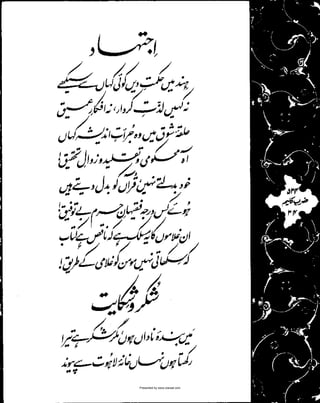 اجتہاد
ہند میں حکمتِ دیں کوئی کہاں سے سیکھے
نہ کہیں لذتِ کردار، نہ افکارِ عمیق
حلقۂ شوق میں وہ جرأتِ اندیشہ کہاں
آہ محکومی و تقلید و زوالِ تحقیق!
خود بدلتے نہیں، قرآں کو بدل دیتے ہیں
ہوئے کس درجہ فقیہانِ حرم بے توفیق!
ان غلاموں کا یہ مسلک ہے کہ ناقص ہے کتاب
کہ سکھاتی نہیں مومن کو غلامی کے طریق!
شکر و شکایت
میں بندۂ ناداں ہوں مگر شکر ہے تیرا
رکھتا ہوں نہاں خانۂ لاہوت سے پیوند
۵۳۴
ضربِ کلیم
۳۴
Presented by www.ziaraat.com